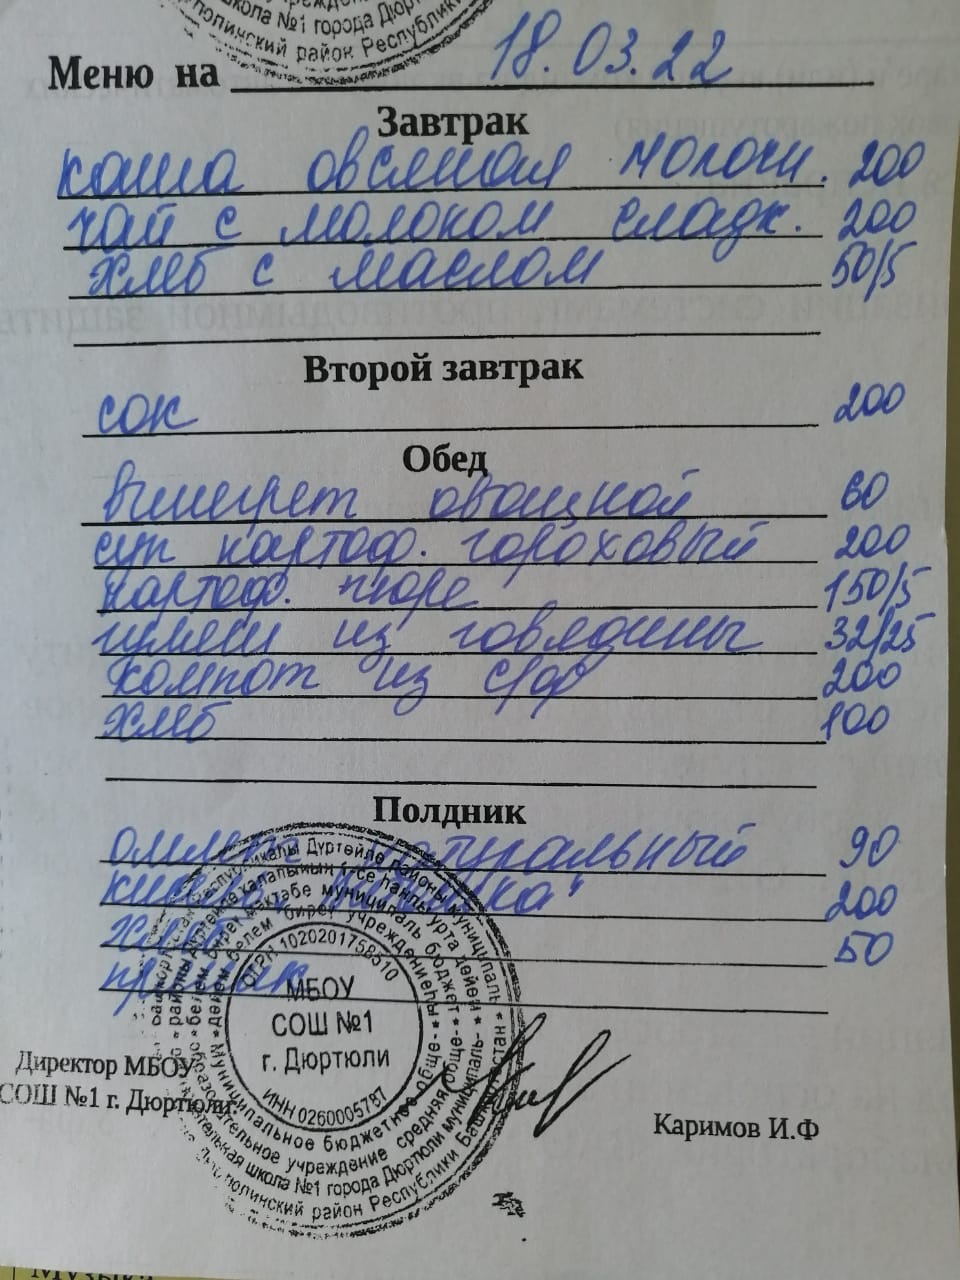 школа №1 города Дюртюли
район Республики
Меню на 18.03.22
Завтрак
каша овсяная молочн. 200
чай с молоком сладк. 200
хлеб с маслом 50/5
Второй завтрак
сок 200
Обед
винегрет овощной 60
суп картоф. гороховый 200
картоф. пюре 150/5
гуляш из говядины 32/25
компот из с/ф 200
хлеб 100
Полдник
омлет натуральный 90
кисель 200
хлеб 50
пряник
ОГРН 1020201758510
МБОУ
СОШ №1
г. Дюртюли
ИНН 0260005787
Муниципальное бюджетное обще-
образовательное учреждение средняя обще-
школа №1 города Дюртюли муниципаль-
район Республики Башкортостан
Директор МБОУ
СОШ №1 г. Дюртюли:
Каримов И.Ф
Музыка